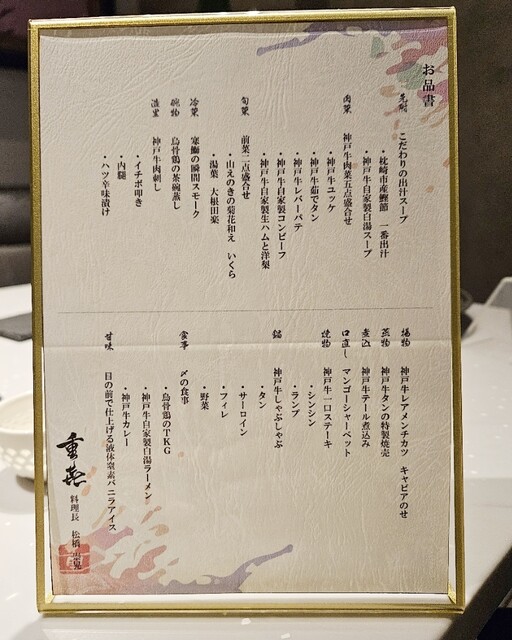 お品書
先附 こだわりの出汁スープ
・枕崎市産鰹節 一番出汁
・神戸牛自家製白湯スープ
肉菜 神戸牛肉菜五点盛合せ
・神戸牛ユッケ
・神戸牛茹でタン
・神戸牛レバーパテ
・神戸牛自家製コンビーフ
・神戸牛自家製生ハムと洋梨
旬菜 前菜二点盛合せ
・山えのきの菊花和え いくら
・湯葉 大根田楽
冷菜 寒鰤の瞬間スモーク
椀物 烏骨鶏の茶碗蒸し
造里 神戸牛肉刺し
・イチボ叩き
・内腿
・ハツ辛味漬け
揚物 神戸牛レアメンチカツ キャビアのせ
蒸物 神戸牛タンの特製焼売
煮込 神戸牛テール煮込み
口直し マンゴーシャーベット
焼物 神戸牛一口ステーキ
・シンシン
・ランプ
鍋 神戸牛しゃぶしゃぶ
・タン
・サーロイン
・フィレ
・野菜
食事 〆の食事
・烏骨鶏のTKG
・神戸牛自家製白湯ラーメン
・神戸牛カレー
甘味 目の前で仕上げる液体窒素バニラアイス
重喜
料理長 松橋